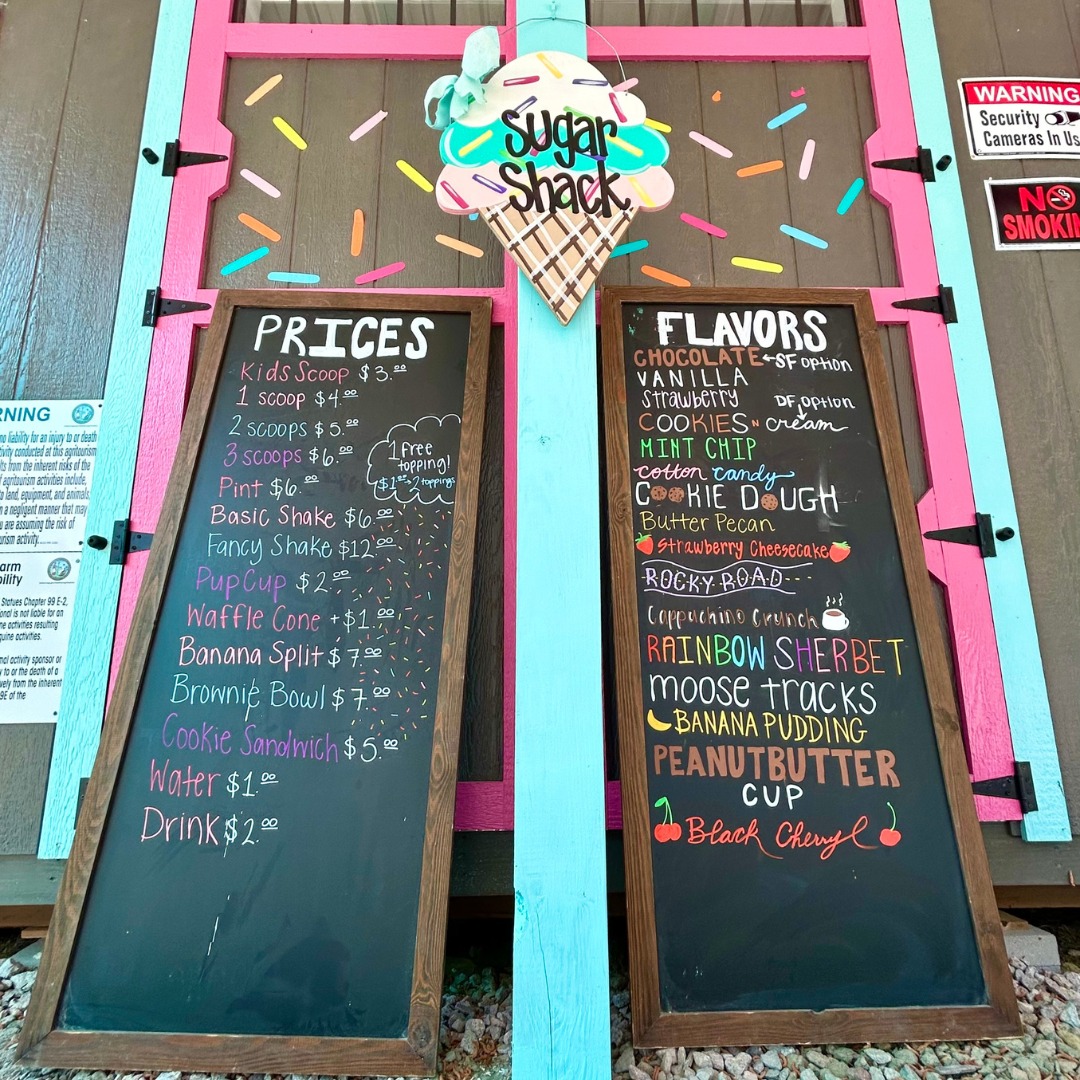 Sugar
Shack
WARNING
Security
Cameras In Us
NO
SMOKIN
PRICES
Kids Scoop $3.00
1 scoop $4.00
2 scoops $5.00
3 scoops $6.00
Pint $6.00
Basic Shake $6.00
Fancy Shake $12.00
Pup Cup $2.00
Waffle Cone +$1.00
Banana Split $7.00
Brownie Bowl $7.00
Cookie Sandwich $5.00
Water $1.00
Drink $2.00
1 Free
topping!
$1.00→2 toppings
FLAVORS
CHOCOLATE ←SF option
VANILLA
Strawberry
DF option
COOKIES N cream
MINT CHIP
cotton candy
COOKIE DOUGH
Butter Pecan
Strawberry Cheesecake
ROCKY ROAD
Cappuchino Crunch
RAINBOW SHERBET
moose tracks
BANANA PUDDING
PEANUTBUTTER
CUP
Black Cherry
RNING
no liability for an injury to or death
ivity conducted at this agritourism
lts from the inherent risks of the
f agritourism activities include,
to land, equipment, and animals,
n a negligent manner that may
u are assuming the risk of
urism activity.
arm
bility
Statues Chapter 99 E-2,
onal is not liable for an
ne activities resulting
quine activities.
mal activity sponsor or
y to or the death of a
vely from the inherent
9E of the